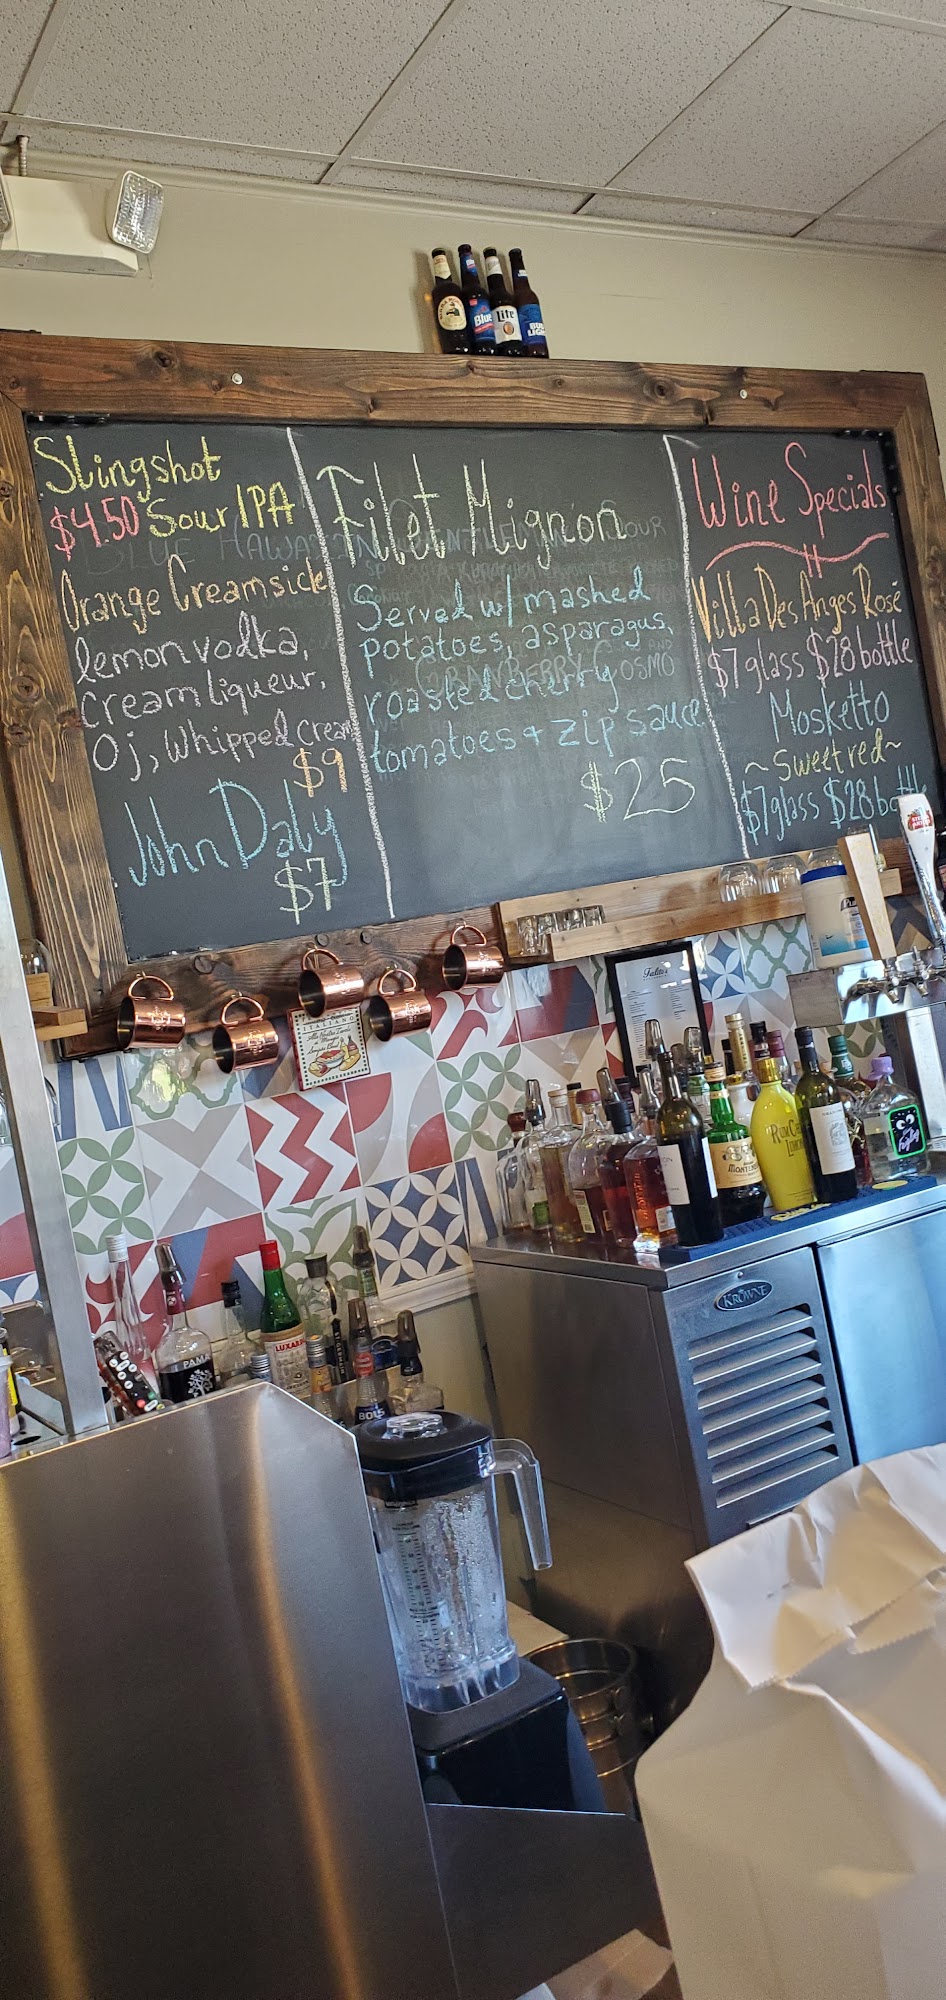 Blue
Lite
BUD
LIGHT
Slingshot
$4.50 Sour IPA
Orange Creamsicle
lemon vodka,
cream liqueur,
Oj, Whipped Cream
$9
John Daly
$7
Filet Mignon
Served w/ mashed
potatoes, asparagus,
roasted cherry
tomatoes + zip sauce
$25
Wine Specials
Villa Des Anges Rosé
$7 glass $28 bottle
Mosketto
~ Sweet red ~
$7 glass $28 bottle
BLUE HAWAIIAN
CRANBERRY COSMO
ITALIANO
KROWNE
PAMA
LUXARDO
BOLS